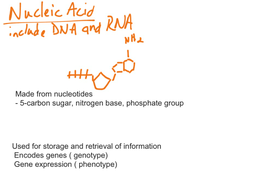 Nucleic Acid
include DNA and RNA
NH2
Made from nucleotides
- 5-carbon sugar, nitrogen base, phosphate group
Used for storage and retrieval of information
Encodes genes ( genotype)
Gene expression ( phenotype)